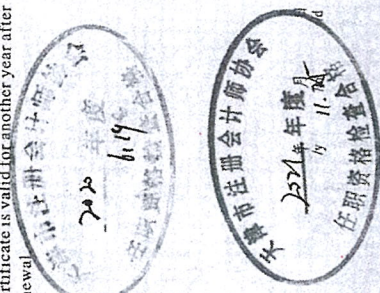 rtificate is valid for another year after
newal.
天津市注册会计师协会
2020 年度
6.19
任职资格检查合格
天津市注册会计师协会
2021年 年度
11.25
任职资格检查合格